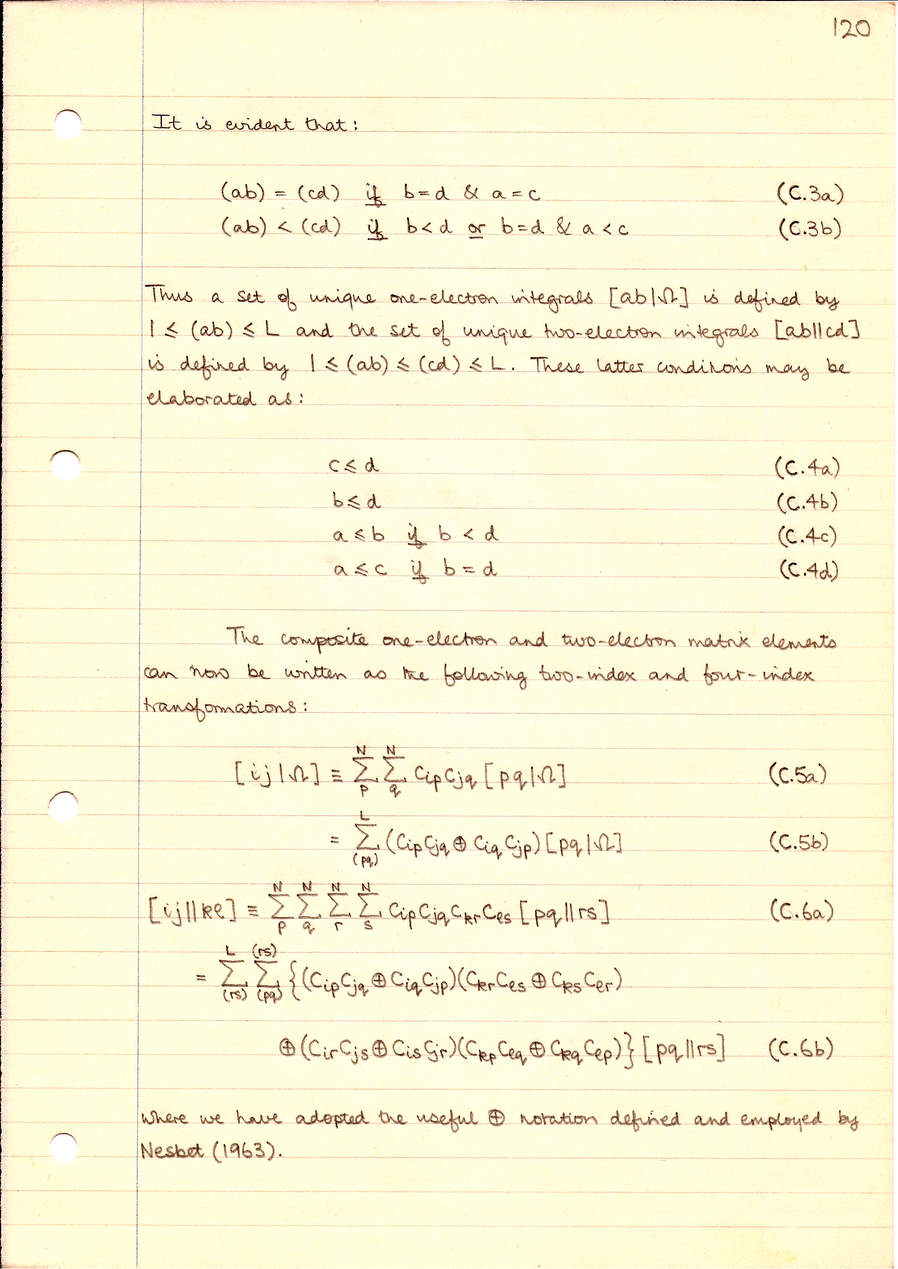 120
It is evident that:
(ab) = (cd) if b=d & a=c (C.3a)
(ab) < (cd) if b<d or b=d & a<c (C.3b)
Thus a set of unique one-electron integrals [ab|Ω] is defined by
1 ≤ (ab) ≤ L and the set of unique two-electron integrals [ab||cd]
is defined by 1 ≤ (ab) ≤ (cd) ≤ L. These latter conditions may be
elaborated as:
c ≤ d (C.4a)
b ≤ d (C.4b)
a ≤ b if b < d (C.4c)
a ≤ c if b = d (C.4d)
The composite one-electron and two-electron matrix elements
can now be written as the following two-index and four-index
transformations:
[ij|Ω] ≡ Σ_p^N Σ_q^N C_ip C_jq [pq|Ω] (C.5a)
= Σ_(pq)^L (C_ip C_jq ⊕ C_iq C_jp) [pq|Ω] (C.5b)
[ij||kl] ≡ Σ_p^N Σ_q^N Σ_r^N Σ_s^N C_ip C_jq C_kr C_ls [pq||rs] (C.6a)
= Σ_(rs)^L Σ_(pq)^(rs) {(C_ip C_jq ⊕ C_iq C_jp)(C_kr C_ls ⊕ C_ks C_lr)
⊕ (C_ir C_js ⊕ C_is C_jr)(C_kp C_lq ⊕ C_kq C_lp)} [pq||rs] (C.6b)
where we have adopted the useful ⊕ notation defined and employed by
Nesbet (1963).